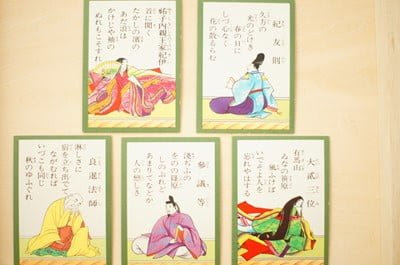 紀友則
久方の
光のどけき
春の日に
しづ心なく
花の散るらむ
祐子内親王家紀伊
音に聞く
たかしの濱の
あだ浪は
かけじや袖の
ぬれもこそすれ
大貳三位
有馬山
ゐなの笹原
風ふけば
いでそよ人を
忘れやはする
參議等
浅ぢふの
をのの篠原
しのぶれど
あまりてなどか
人の戀しき
良暹法師
淋しさに
宿を立ち出でて
ながむれば
いづこも同じ
秋のゆふぐれ